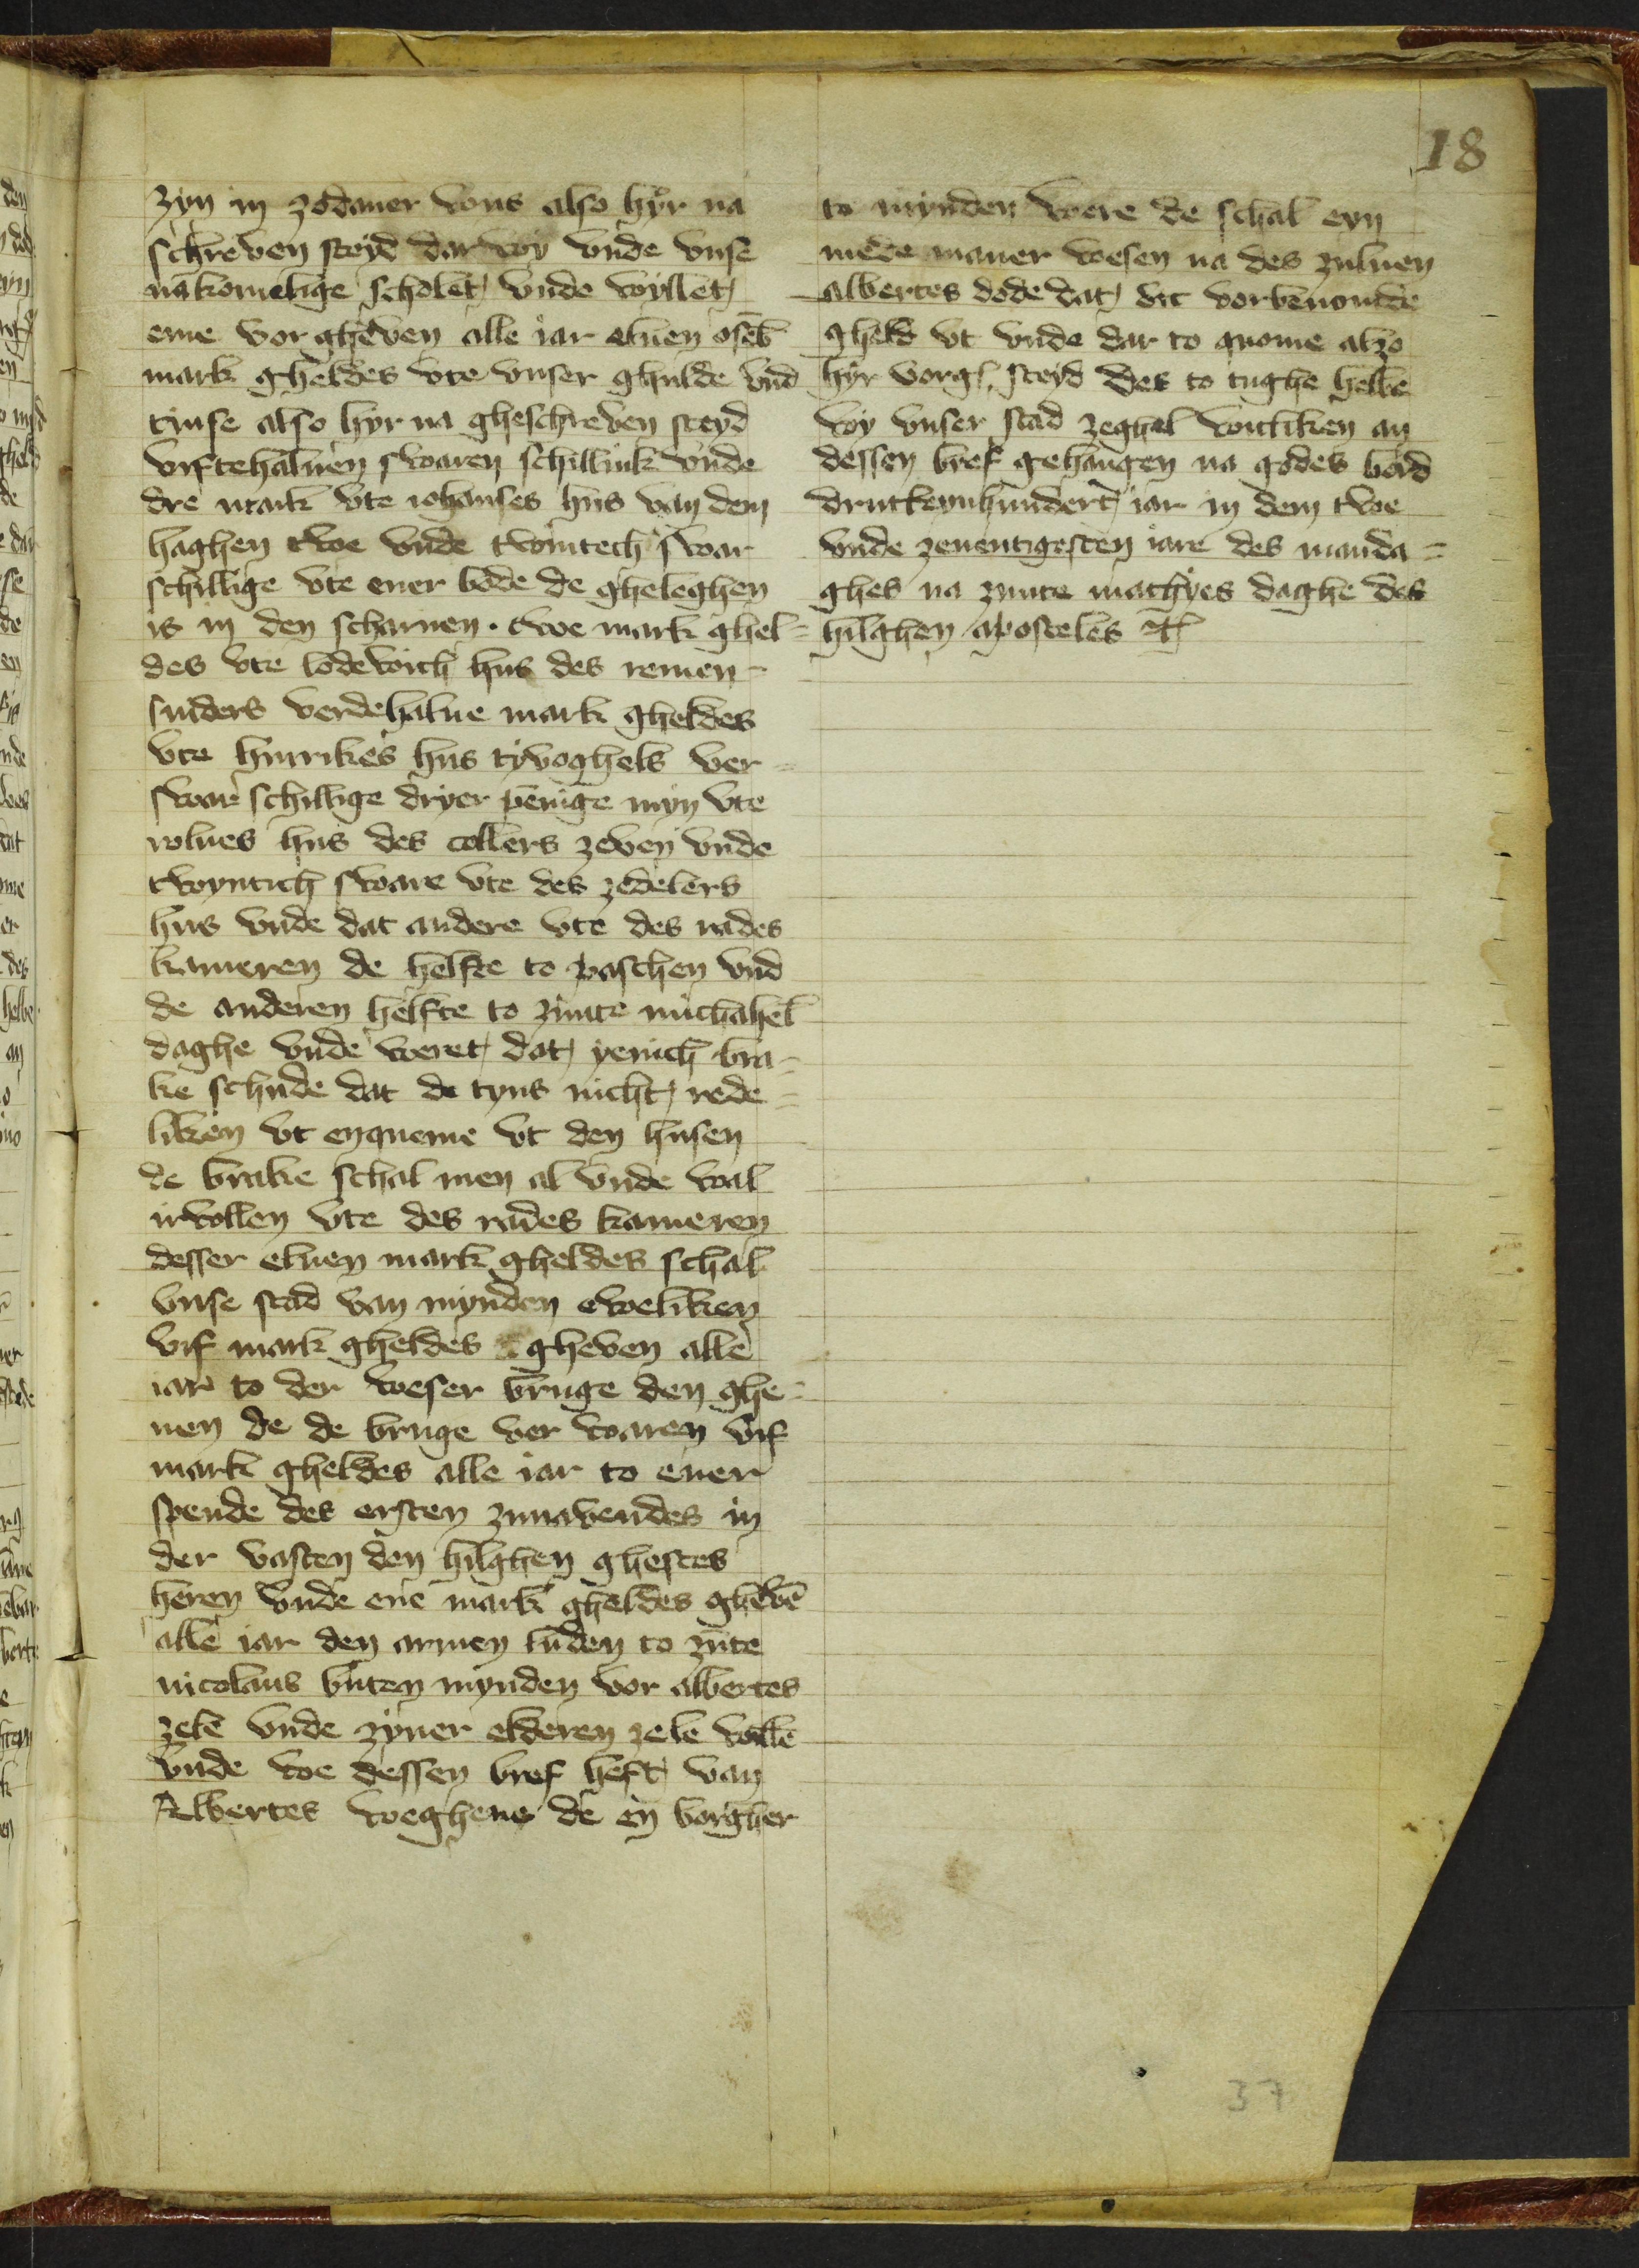 18
zyn in zodaner wys also hyr na
schreven steyd dar wy vnde vnse
nakomelige scholet vnde wyllet
eme vor gheven alle iar eluen
mark gheldes vte vnser ghulde vnd
tinse also hyr na gheschreven steyd
vifte haluen swaren schillink vnde
dre mark vte iohanses hus van dem
haghen twe vnde twintech swar
schillige vte ener bode de gheleghen
is in den scharnen . twe mark ghel=
des vte lodewich hus des remen=
sniders verdehalue mark gheldes
vte hinrikes hus tyvoghels ver=
swar schillige dryer penige myn vte
rolues hus des collers zeven vnde
twyntich sware vte des zedelers
hus vnde dat andere vte des rades
kameren de helfte to paschen vnd
de anderen helfte to zunte michahel
daghe vnde weret dat yenich bra=
ke schude dat de tyns nicht rede=
liken vt enqueme vt den husen
de brake schal men al vnde wal
irvollen vte des rades kameren
desser eluen mark gheldes schal
vnse stad van mynden eweliken
vif mark gheldes gheven alle
iar to der weser bruge den ghe=
nen de de bruge vor waren vif
mark gheldes alle iar to ener
spende des ersten zunavendes in
der vasten den hilghen ghestes
heren vnde ene mark gheldes ghevē
alle iar den armen luden to zūte
nicolaus buten mynden vor albertes
zele vnde zyner elderen zele
vnde we dessen bref heft van
Albertes weghene de en borgher
to mynden were de schal eyn
mede maner wesen na des zuluen
albertes dode dat dit vorbenomde
gheld vt vnde dar to quome alzo
hyr vorg. steyd des to tughe hebbe
wy vnser stad zeghel witliken an
dessen bref gehangen na godes bord
drutteynhundert iar in dem twe
vnde zeuentigesten iare des manda=
ghes na zunte mathyes daghe des
hilghen apostelen
37